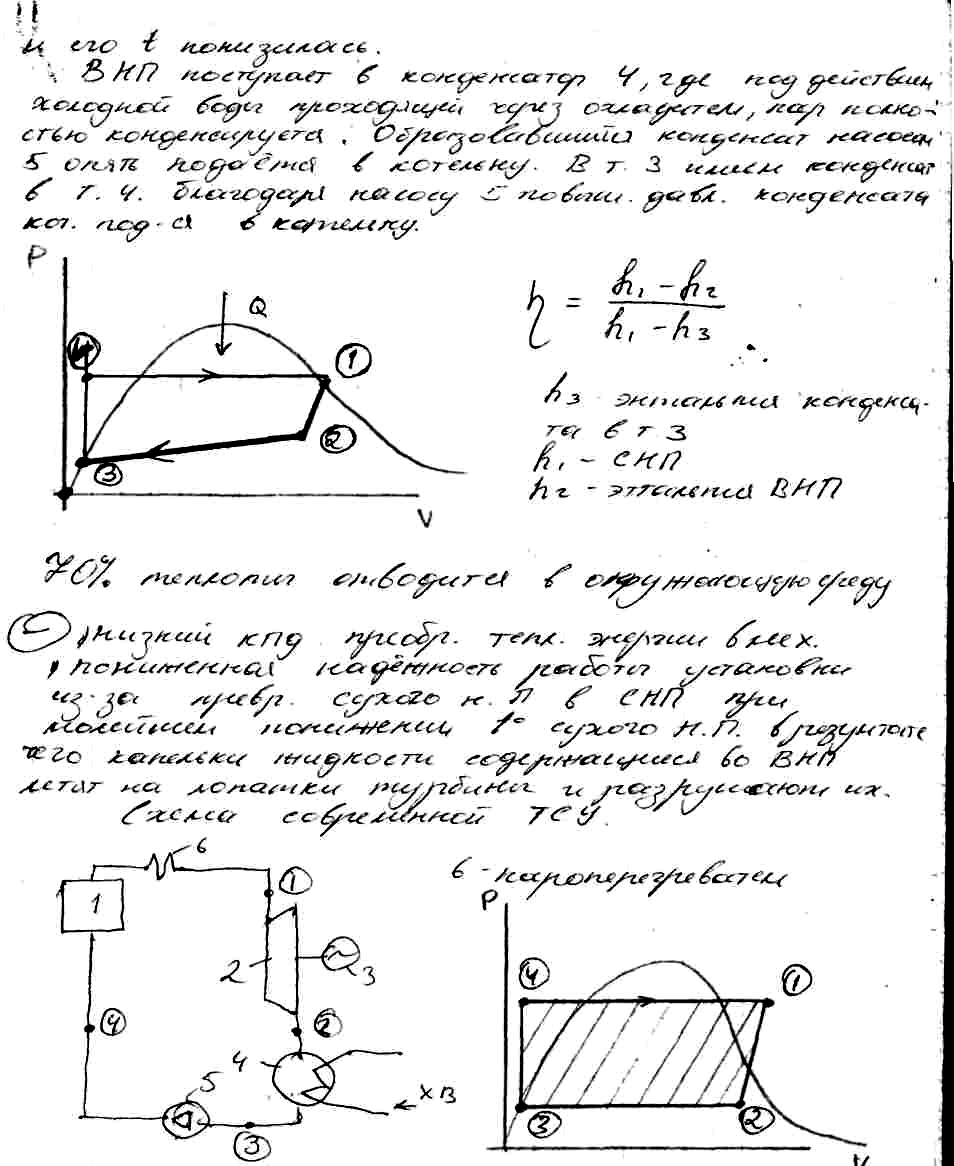 и его t понизилась.
ВНП поступает в конденсатор 4, где под действием
холодной воды проходящей через охладители, пар полно-
стью конденсируется. Образовавшийся конденсат насосом
5 опять подаётся в котельну. В т. 3 имеем конденсат
в т. 4. благодаря насосу 5 повыш. давл. конденсата
кот. под-ся в котельну.
P
Q
4
1
2
3
V
η = (h₁ - h₂) / (h₁ - h₃)
h₃ - энтальпия конденса-
та в т 3
h₁ - СНП
h₂ - энтальпия ВНП
70% теплоты отводится в окружающую среду
низкий кпд преобр. тепл. энергии в мех.
пониженная надёжность работы установки
из-за превр. сухого н. П в СНП при
малейшем понижении t° сухого Н.П. в результате
чего капельки жидкости содержащиеся во ВНП
летят на лопатки турбины и разрушают их.
Схема современной ТСУ.
6
6 - пароперегреватель
1
1
2
3
4
2
4
5
3
ХВ
P
4
1
3
2
V